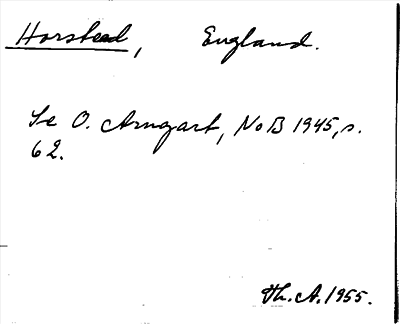 Horstead, England.
Se O. Arngart, NoB 1945, s.
62.
Th. A. 1955.